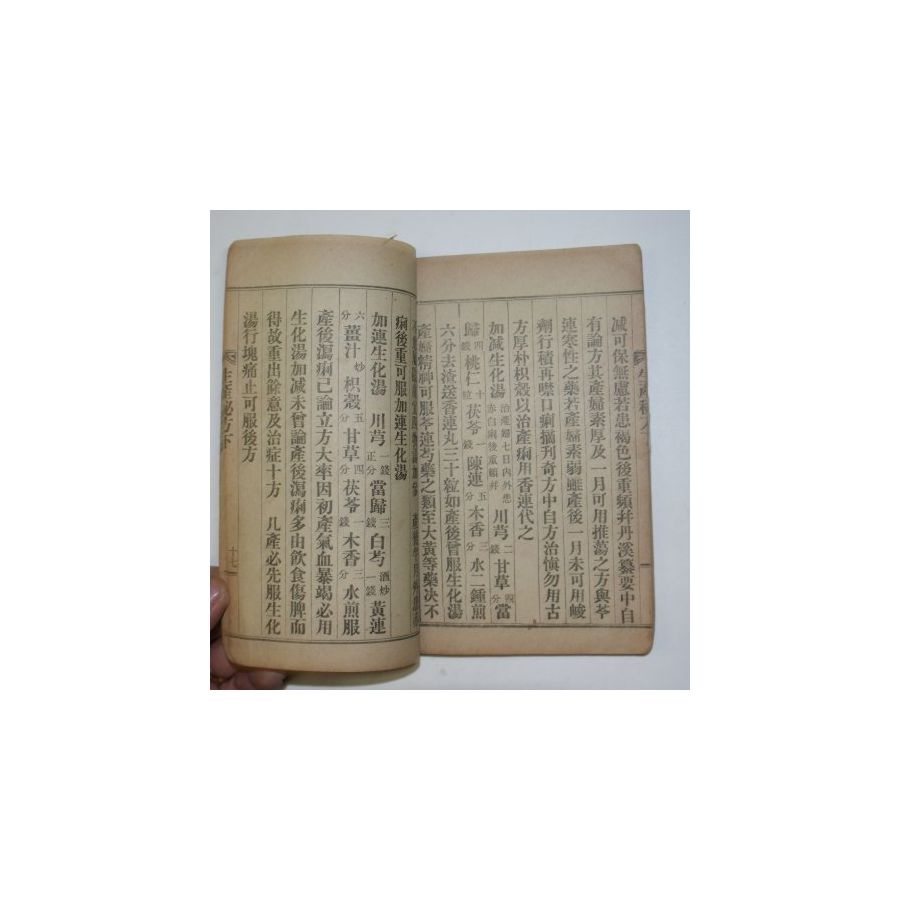 減可保無虞若患褐色後重頻幷丹溪纂要中白
有論方其產婦素厚及一月可用推蕩之方與芩
連寒性之藥若產婦素弱雖產後一月未可用峻
劑行積再噤口痢摘刊奇方中白方治愼勿用古
方厚朴枳殼以治產痢用香連代之
加減生化湯 治產婦七日內外患赤白痢後重頻幷 川芎二錢 甘草四分 當
歸四錢 桃仁十粒 茯苓一錢 陳連五分 木香三分 水二鍾煎
六分去渣送香連丸三十粒如產後曾服生化湯
產婦精神可服芩連芍藥之類至大黃等藥决不
痢後重可服加連生化湯
加連生化湯 川芎一錢正分 當歸三錢 白芍酒炒一錢 黃連
六分 薑汁炒 枳殼五分 甘草四分 茯苓一錢 木香三分 水煎服
產後瀉痢已論立方大率因初產氣血暴竭必用
生化湯加減未曾論產後瀉痢多由飮食傷脾而
得故重出餘意及治症十方 凡產必先服生化
湯行塊痛止可服後方
生產秘方下
十七